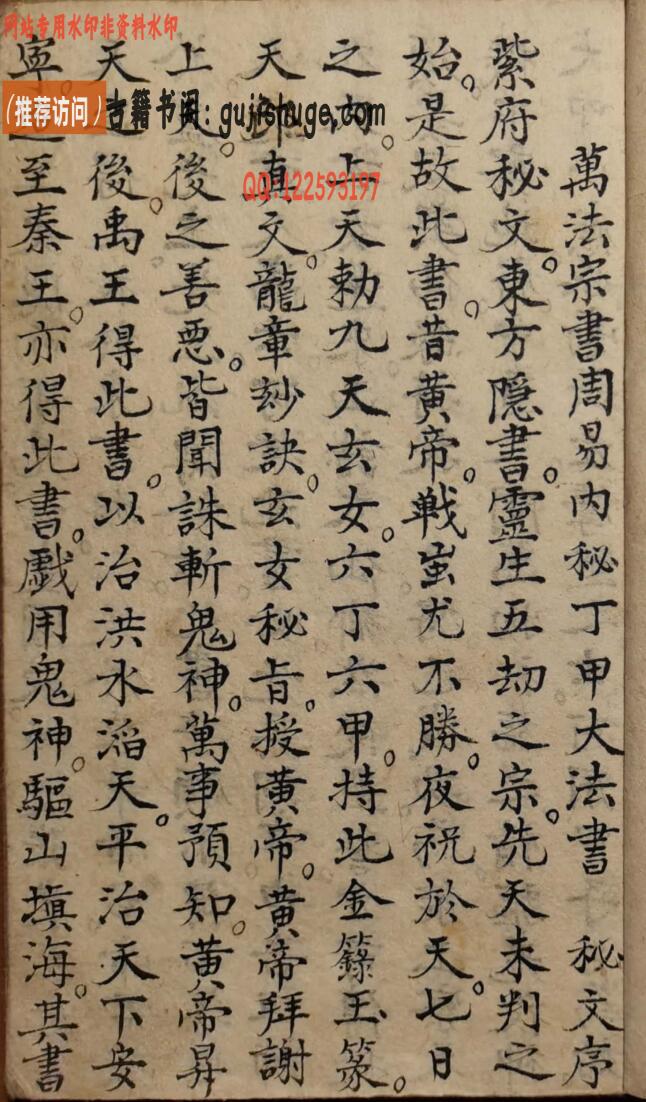 网站专用水印非资料水印
（推荐访问）古籍书阁: gujishuge.com
QQ:122593197
萬法宗書周易內秘丁甲大法書 秘文序
紫府秘文。東方隱書。靈生五刼之宗。先天未判之
始。是故此書。昔黃帝。戰蚩尤不勝。夜祝於天。七日
之內。上天勅九天玄女。六丁六甲。持此金籙玉篆。
天真文。龍章玅訣。玄女秘旨。授黃帝。黃帝拜謝
上天。後之善惡。皆聞誅斬鬼神。萬事預知。黃帝昇
天後。禹王得此書。以治洪水滔天。平治天下安
寧。至秦王。亦得此書。戲用鬼神。驅山填海。其書